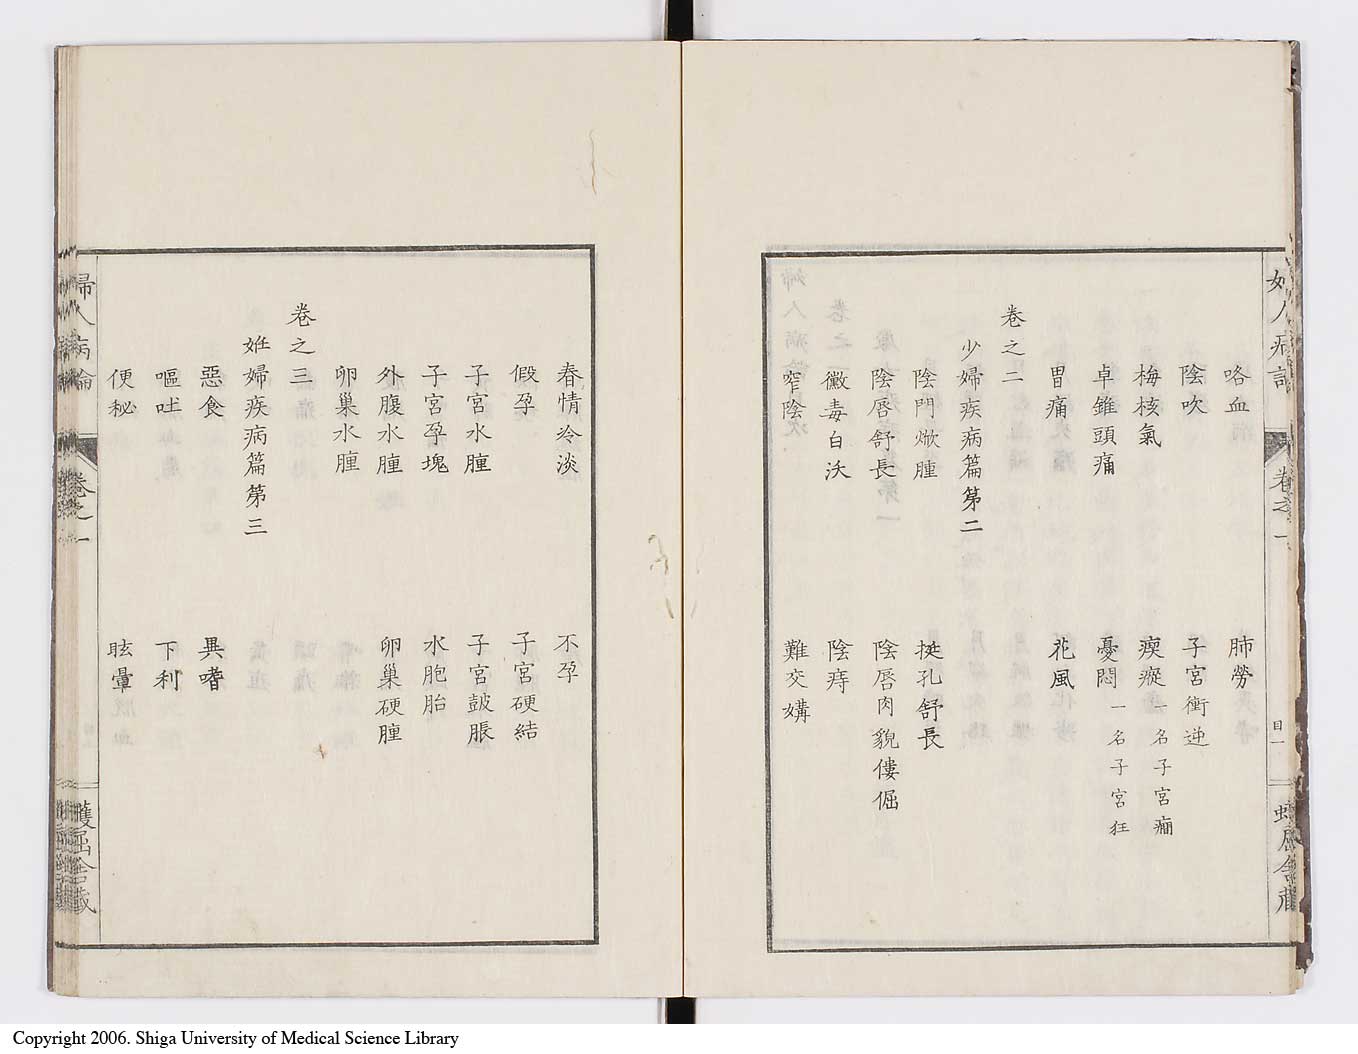 咯血　肺勞
陰吹　子宮衝逆
梅核氣　瘈瘲一名子宮癇
卓錐頭痛　憂悶一名子宮狂
胃痛　花風
卷之二
少婦疾病篇第二
陰門焮腫　挺孔舒長
陰唇舒長　陰唇肉貌僂倔
黴毒白沃　陰痔
窄陰　難交媾
春情冷淡　不孕
假孕　子宮硬結
子宮水腫　子宮皷脹
子宮孕塊　水胞胎
外腹水腫　卵巢硬腫
卵巢水腫
卷之三
姙婦疾病篇第三
惡食　異嗜
嘔吐　下利
便秘　眩暈
婦人病論
卷之一
目一
蠖屈舍藏
Copyright 2006. Shiga University of Medical Science Library